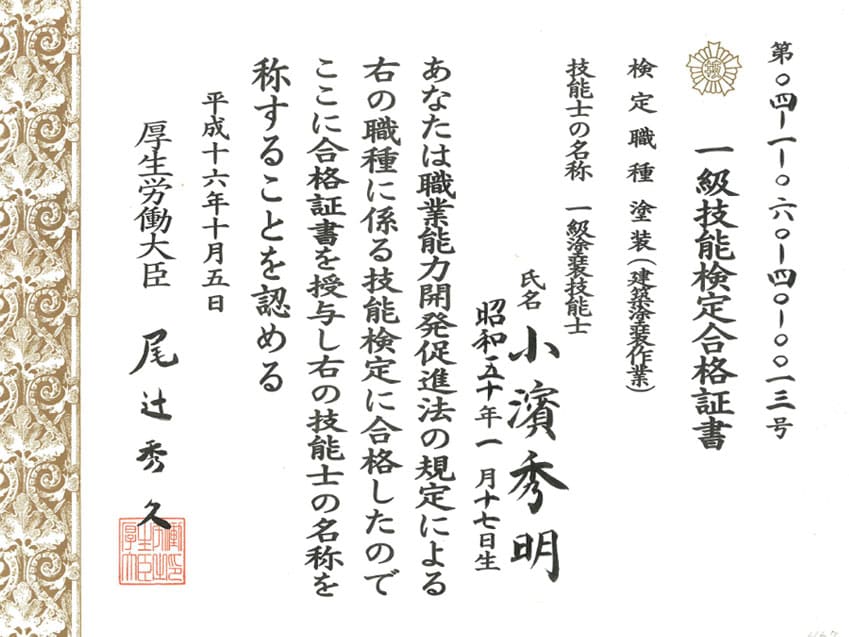 第〇四ー一ー〇六ー〇四ー〇〇一三号
一級技能検定合格証書
検定職種 塗装(建築塗装作業)
技能士の名称 一級塗装技能士
氏名 小濱秀明
昭和五十年一月十七日生
あなたは職業能力開発促進法の規定による
右の職種に係る技能検定に合格したので
ここに合格証書を授与し右の技能士の名称を
称することを認める
平成十六年十月五日
厚生労働大臣 尾辻秀久